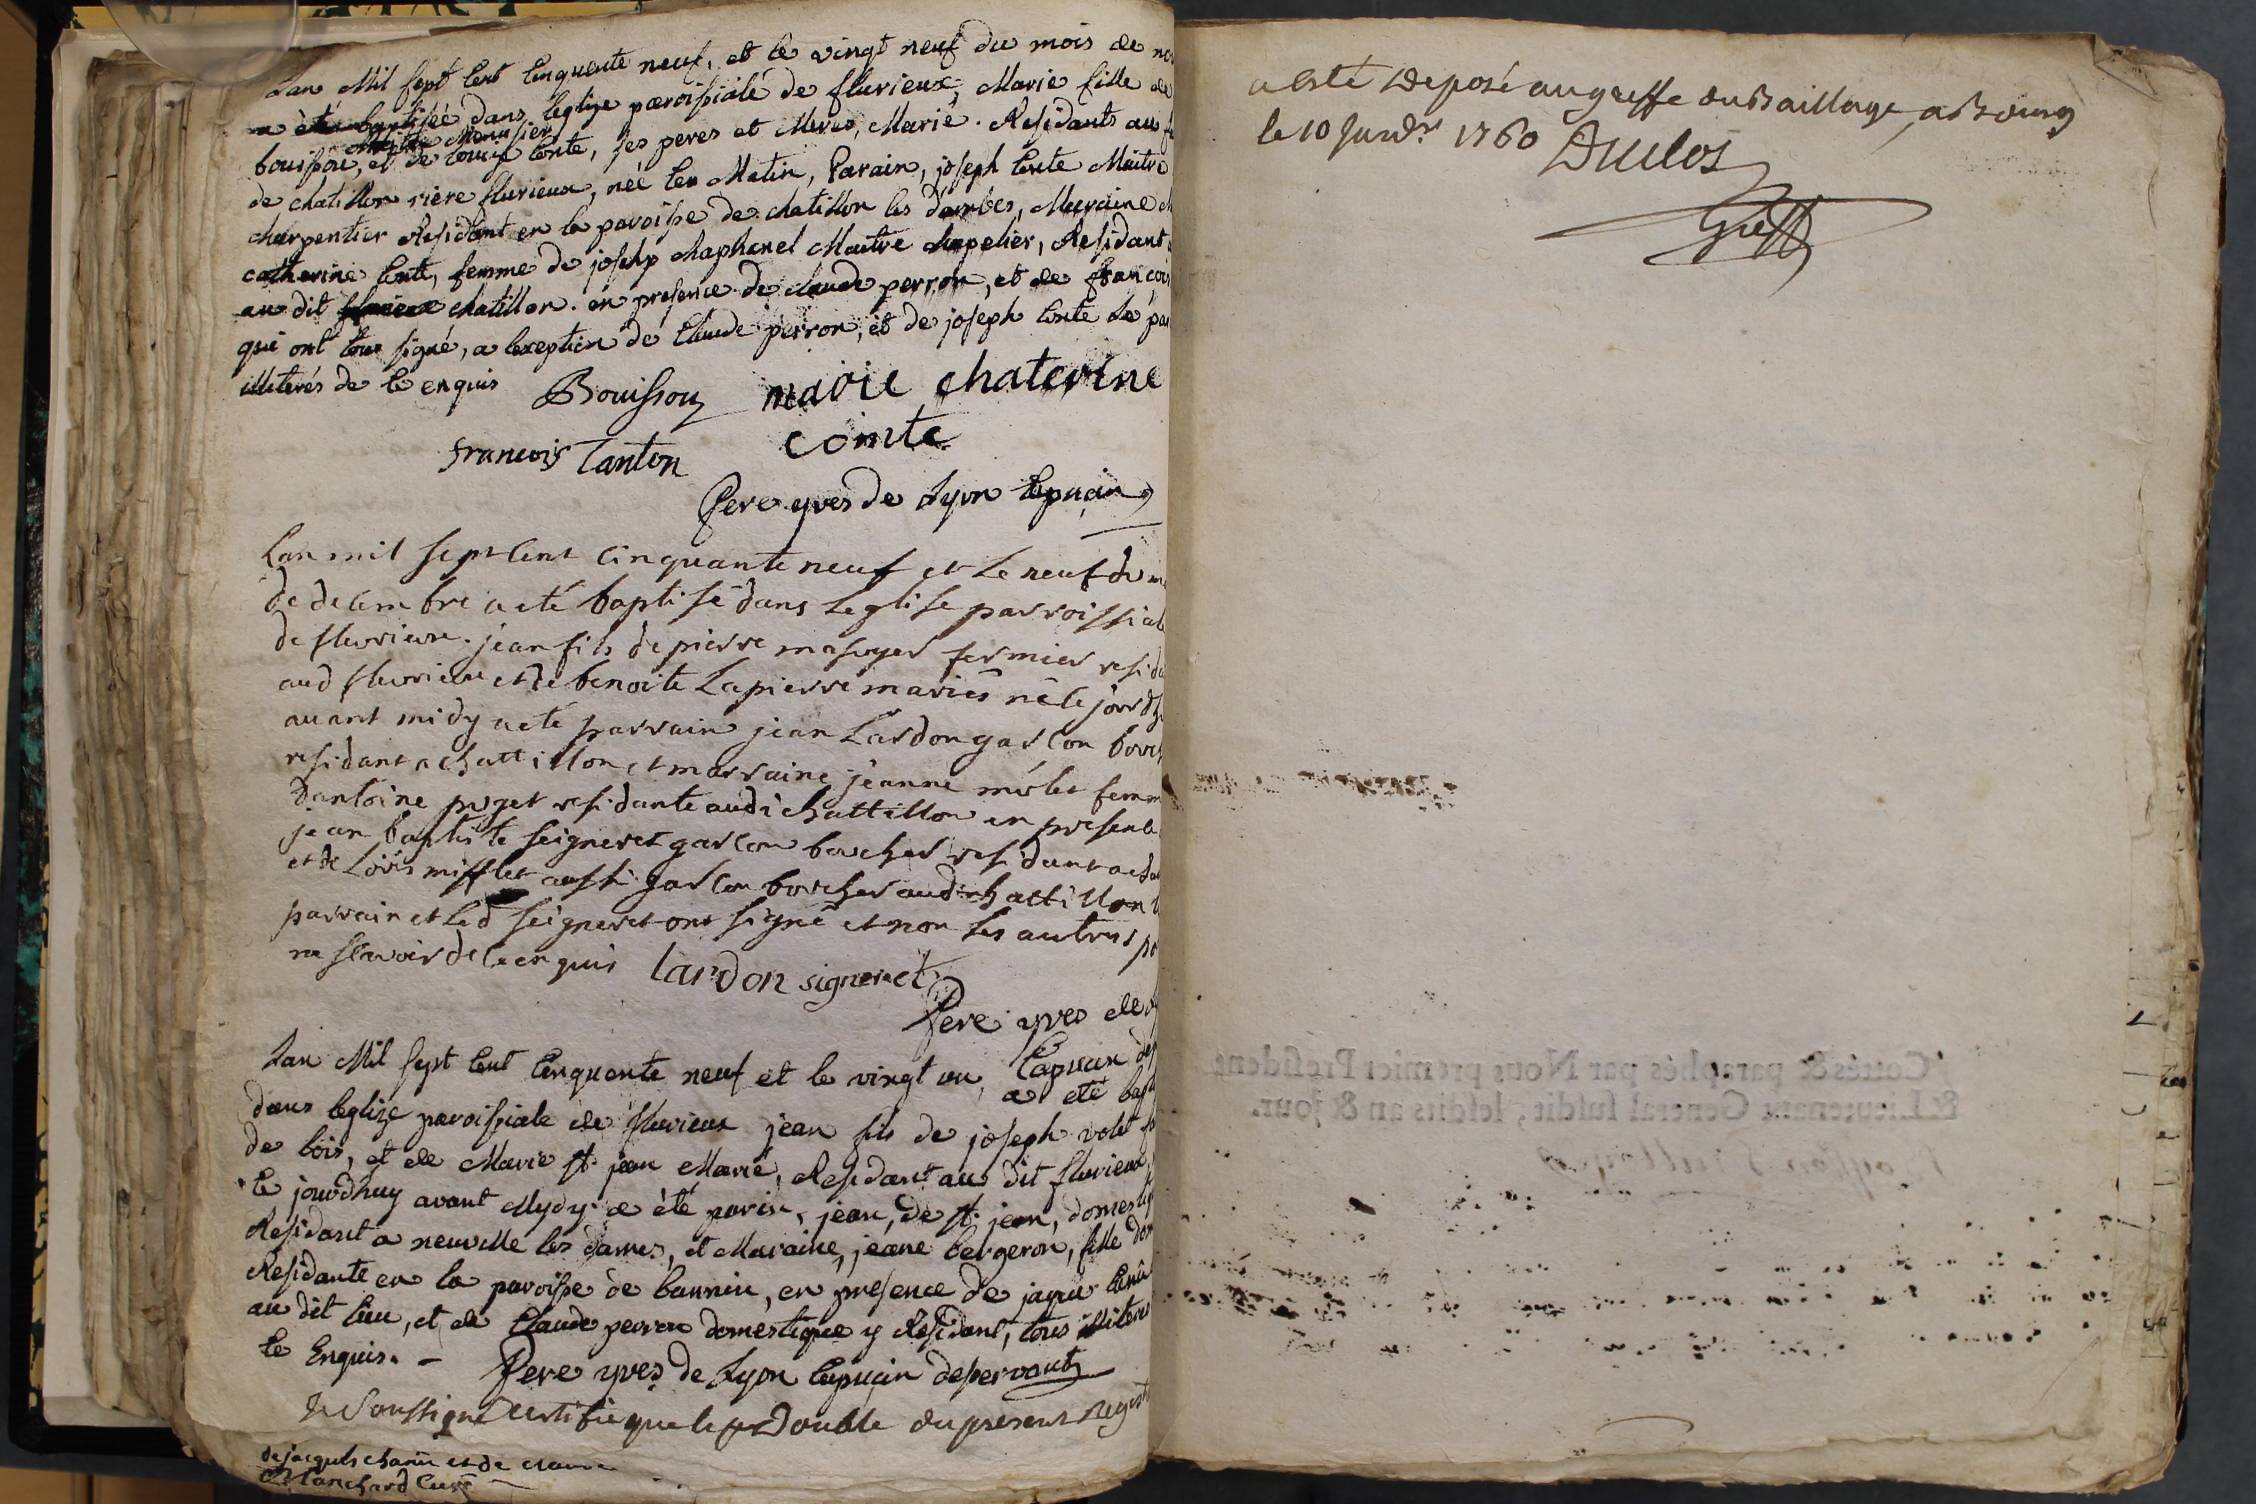 Lan Mil sept Cent Cinquente neuf, et le vingt neuf du mois de
a été baptisée dans leglize paroissiale de flurieux, Marie fille de
Maitre Menusier
bouisson, et de Conte, ses peres et Meres, Marié. Residants au
de chatillon riere flurieux, née le Matin, Parain, joseph Conte Maitre
charpentier Residant en la paroisse de chatillon les dombes, Maraine
catherine Conte, femme de josehp chaphanel Maitre chapelier, Residant
au dit flurieux chatillon. en presence de claude perron, et de francois
qui ont tous signé, a lexeption de Claude perron, et de joseph Conte Le
illiterés de ce enquis Bouisson marie chaterine
francois Tanton comte
Pere yves de Lyon Capucin
Lan mil sept Cent Cinquante neuf et Le neuf du
de decembre a eté baptisé dans Leglise parroissial
de fleurieux. jean fils de pierre masuyer fermier resida
aud fleurieux et de benoite Lapierre mariés né le jourdh
avant midy a eté parrain jean Lardon garcon
residant a chattillon et marraine jeanne femm
dantoine puget residante audi chattillon en presence
jean baptiste seigneret garcon boucher residant a cha
et de Loüis mifflet aussi garcon boucher aud chattillon
parrain et Led seigneret ont signé et non les autres
ne scavoir de ce enquis Lardon signeret
Pere yves de
Capucin
Lan Mil sept Cent Cinquente neuf et le vingt un, a eté
dans leglize paroissiale de flurieux jean fils de joseph volet
de bois, et de Marie st. jean Marié, Residant au dit flurieux
le jourdhuy avant Mydy. a été parin, jean, de st. jean,
Residant a neuville les dames, et Maraine, jeane bergeron, fille
Residante en la paroisse de bannin, en presence de jaque
au dit lieu, et de Claude perron domestique y Residant, tous
ce Enquis. - Pere yves de Lyon Capucin deservant
Je Soussigné Certifie que le pr Double du present Regist
de jacques et de
Blanchard Curé
a esté Deposé au greffe du Baillage, a Bourg
le 10 Janvr. 1760 Duclos
Greff
Cottés & paraphés par Nous premier President
& Lieutenant General susdit, lesdits an & jour.